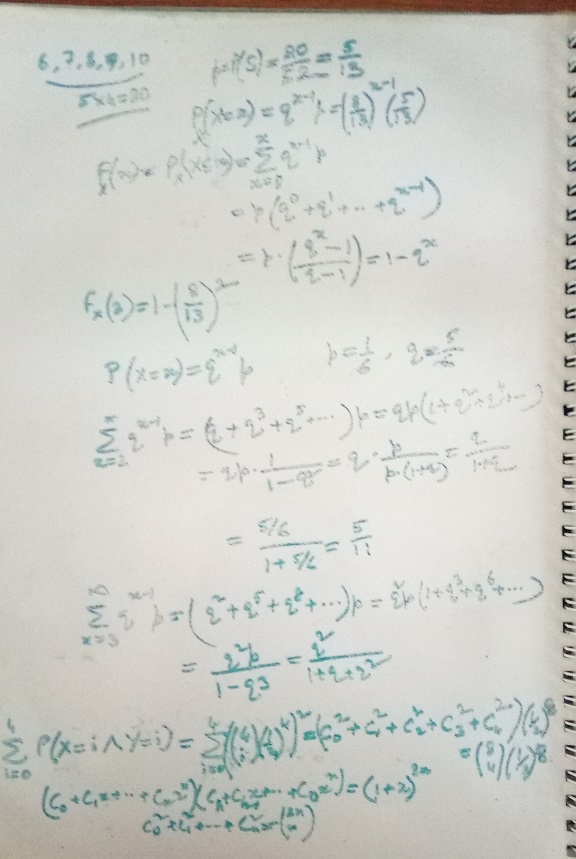 6, 7, 8, 9, 10
5×4=20
p=P(S) = 20/52 = 5/13
P(X=x) = q^(x-1) p = (8/13)^(x-1) (5/13)
F_X(x) = P_X(X≤x) = Σ q^(x-1) p
= p (q^0 + q^1 + ... + q^(x-1))
= p · ((q^x - 1)/(q - 1)) = 1 - q^x
F_X(2) = 1 - (8/13)^2
P(X=x) = q^(x-1) p    p = 1/6, q = 5/6
Σ_(x=2) q^(x-1) p = (q + q^3 + q^5 + ...) p = qp (1 + q^2 + q^4 + ...)
= qp · 1/(1 - q^2) = q · p/(p·(1+q)) = q/(1+q)
= (5/6)/(1 + 5/6) = 5/11
Σ_(x=3) q^(x-1) p = (q^2 + q^5 + q^8 + ...) p = q^2 p (1 + q^3 + q^6 + ...)
= q^2 p/(1 - q^3) = q^2/(1 + q + q^2)
Σ_(i=0)^4 P(X=i ∧ Y=i) = Σ_(i=0)^4 ((4 i) (1/2)^4)^2 = (C_0^2 + C_1^2 + C_2^2 + C_3^2 + C_4^2) (1/2)^8
= (8 4) (1/2)^8
(C_0 + C_1 x + ... + C_n x^n) (C_n + C_(n-1) x + ... + C_0 x^n) = (1+x)^(2n)
C_0^2 + C_1^2 + ... + C_n^2 = (2n n)